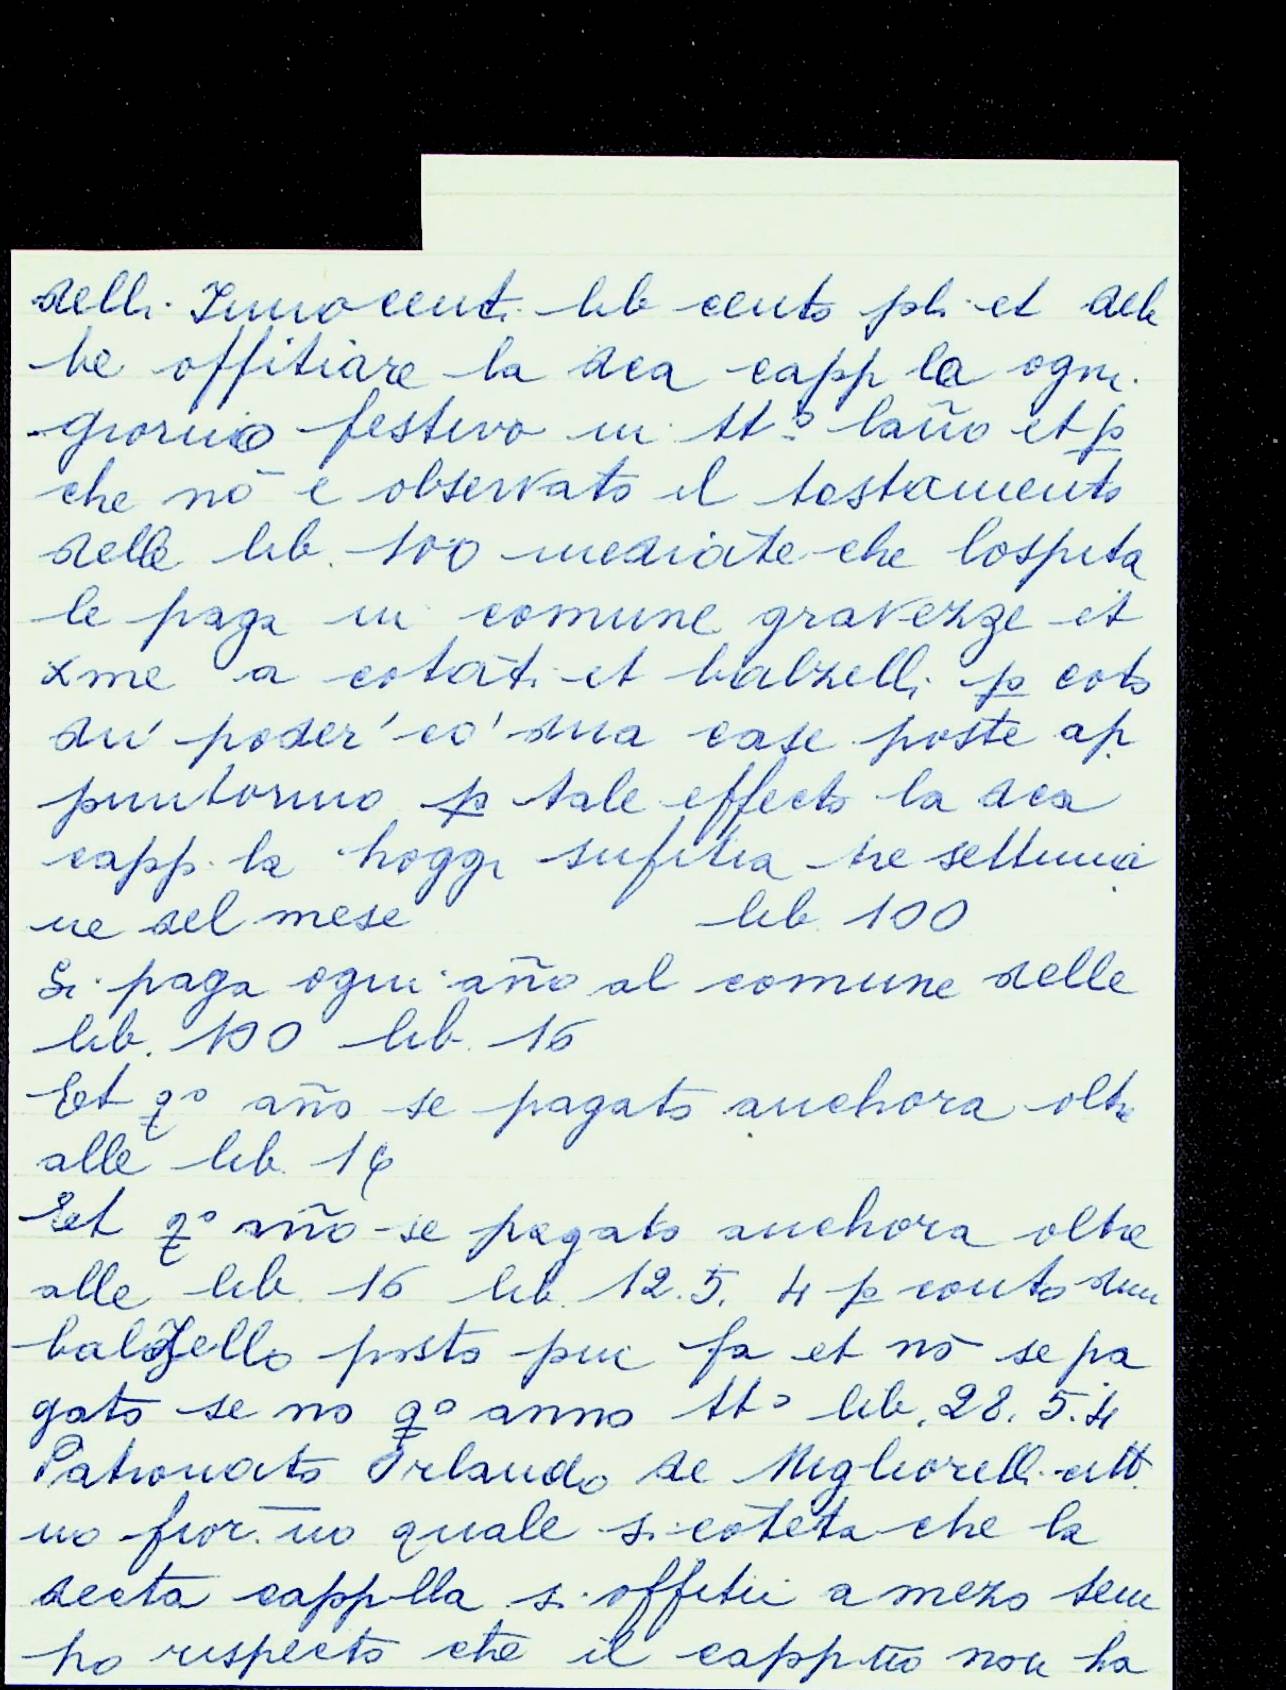 delli Innocenti lib cento pli et deb
be offitiare la dca capp la ogni
giorno festivo in tt.º laño et p
che nō e observato il testamento
delle lib. 100 mediāte che lospita
le paga in comune gravezze et
xme a cotāti et balzelli p cōto
du' poder' co' dua case poste ap
puntormo p tale effecto la dca
capp. la hoggi sufitia tre settima
ne del mese lib. 100
Si paga ogni año al comune delle
lib. 100 lib. 16
Et qº año se pagato anchora oltre
alle lib. 16
Et qº año se pagato anchora oltre
alle lib. 16 lib. 12.5. 4 p conto dun
balzello posto piu fa et nō se pa
gato se no qº anno ttº lib. 28. 5.4
Patronato Orlando de Migliorelli citt.
no fior. no quale si cōtēta che la
decta cappella si offitii a mezo tem
po respecto che il capp.no non ha